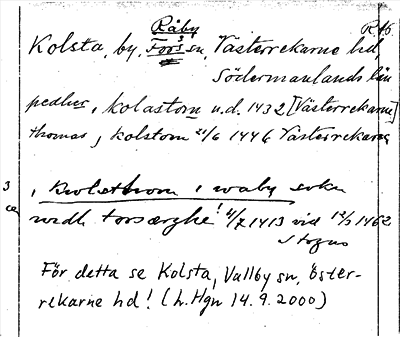 Råby R 16
Kolsta, by, Fors sn, Västerrekarne hd,
Södermanlands län
pedhær, kolastom u.d. 1432 [Västerrekarne]
thomas, kolstom 21/6 1446 Västerrekarne
3 , i waby sokn
ca widh torsærghe! 4/7 1413 vid 12/3 1462
För detta se Kolsta, Vallby sn, Öster-
rekarne hd! (L. Hgn 14.9.2000)